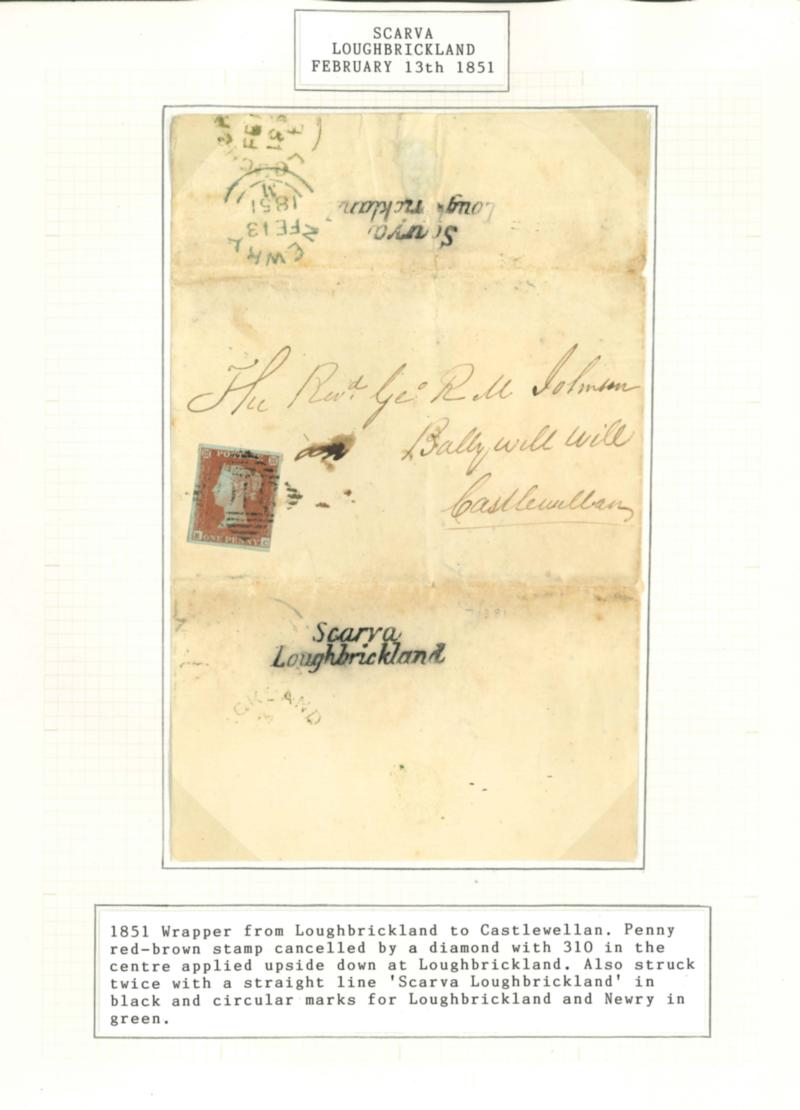 SCARVA
LOUGHBRICKLAND
FEBRUARY 13th 1851
FE
LOUGHBR
1851
FE 13
NEWRY
Scarva
Loughbrickland
The Revd. Geo R M Johnson
Ballywill Will
Castlewellan
POSTAGE
ONE PENNY
Scarva
Loughbrickland
CKLAND
1851 Wrapper from Loughbrickland to Castlewellan. Penny
red-brown stamp cancelled by a diamond with 310 in the
centre applied upside down at Loughbrickland. Also struck
twice with a straight line 'Scarva Loughbrickland' in
black and circular marks for Loughbrickland and Newry in
green.